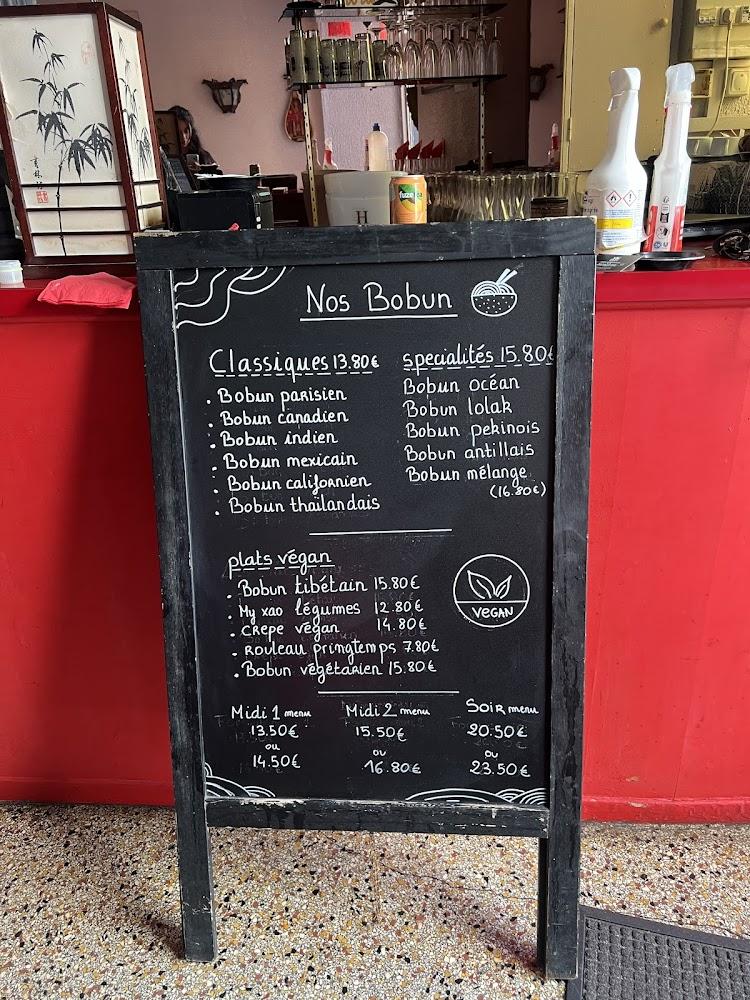 fuze
H
Nos Bobun
Classiques 13.80€
. Bobun parisien
. Bobun canadien
. Bobun indien
. Bobun mexicain
. Bobun californien
. Bobun thaïlandais
specialités 15.80€
Bobun océan
Bobun lolak
Bobun pekinois
Bobun antillais
Bobun mélange
(16.80€)
plats végan
. Bobun tibétain 15.80€
. My xao légumes 12.80€
. crepe végan 14.80€
. Rouleau pringtemps 7.80€
. Bobun végétarien 15.80€
VEGAN
Midi 1 menu
13.50€
ou
14.50€
Midi 2 menu
15.50€
ou
16.80€
SOIR menu
20.50€
ou
23.50€